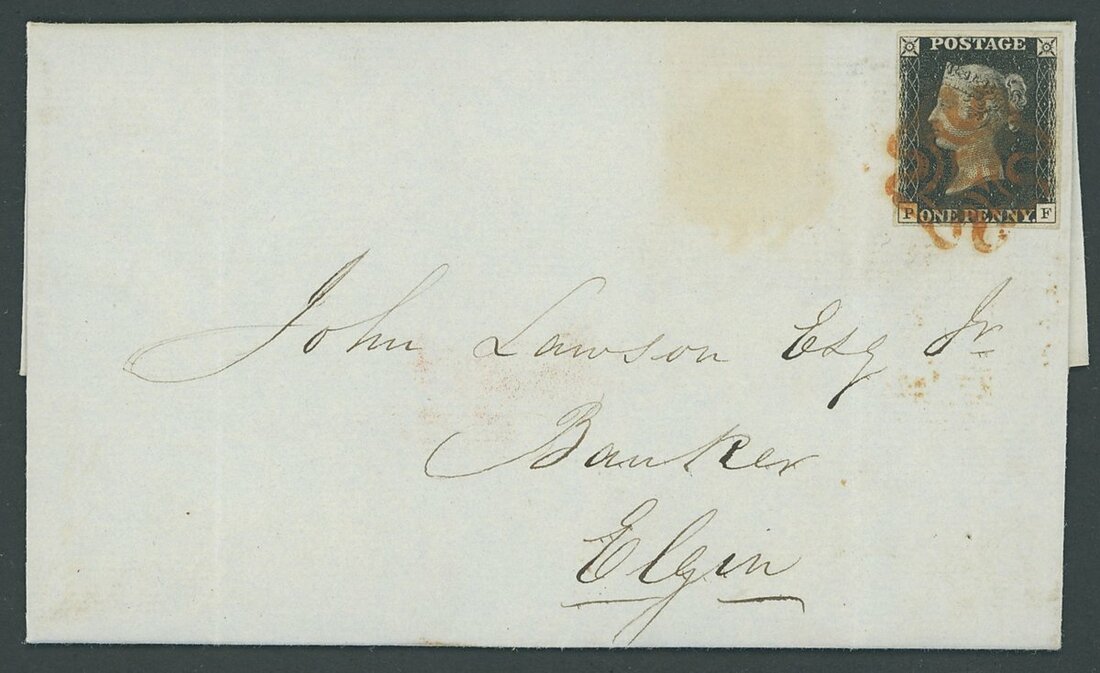 POSTAGE
P ONE PENNY. F
John Lawson Esq Jr
Banker
Elgin